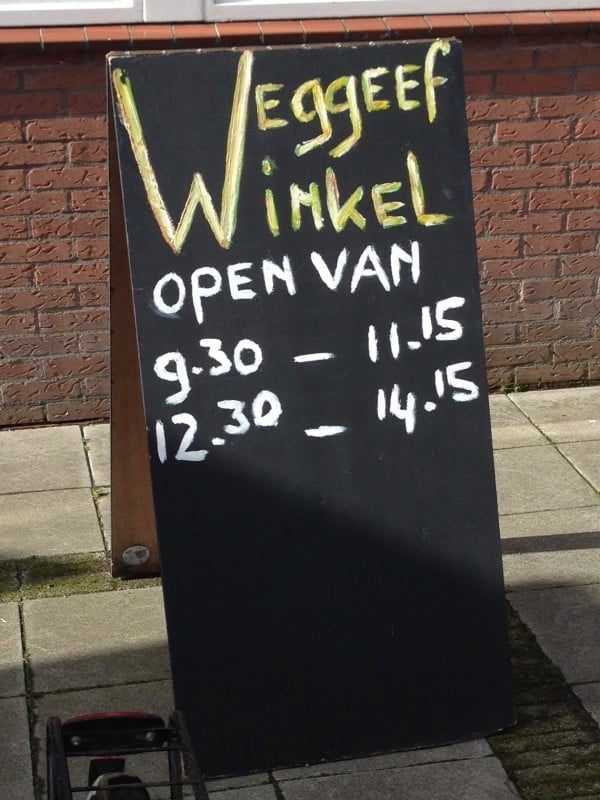 Weggeef
Winkel
OPEN VAN
9.30 – 11.15
12.30 – 14.15